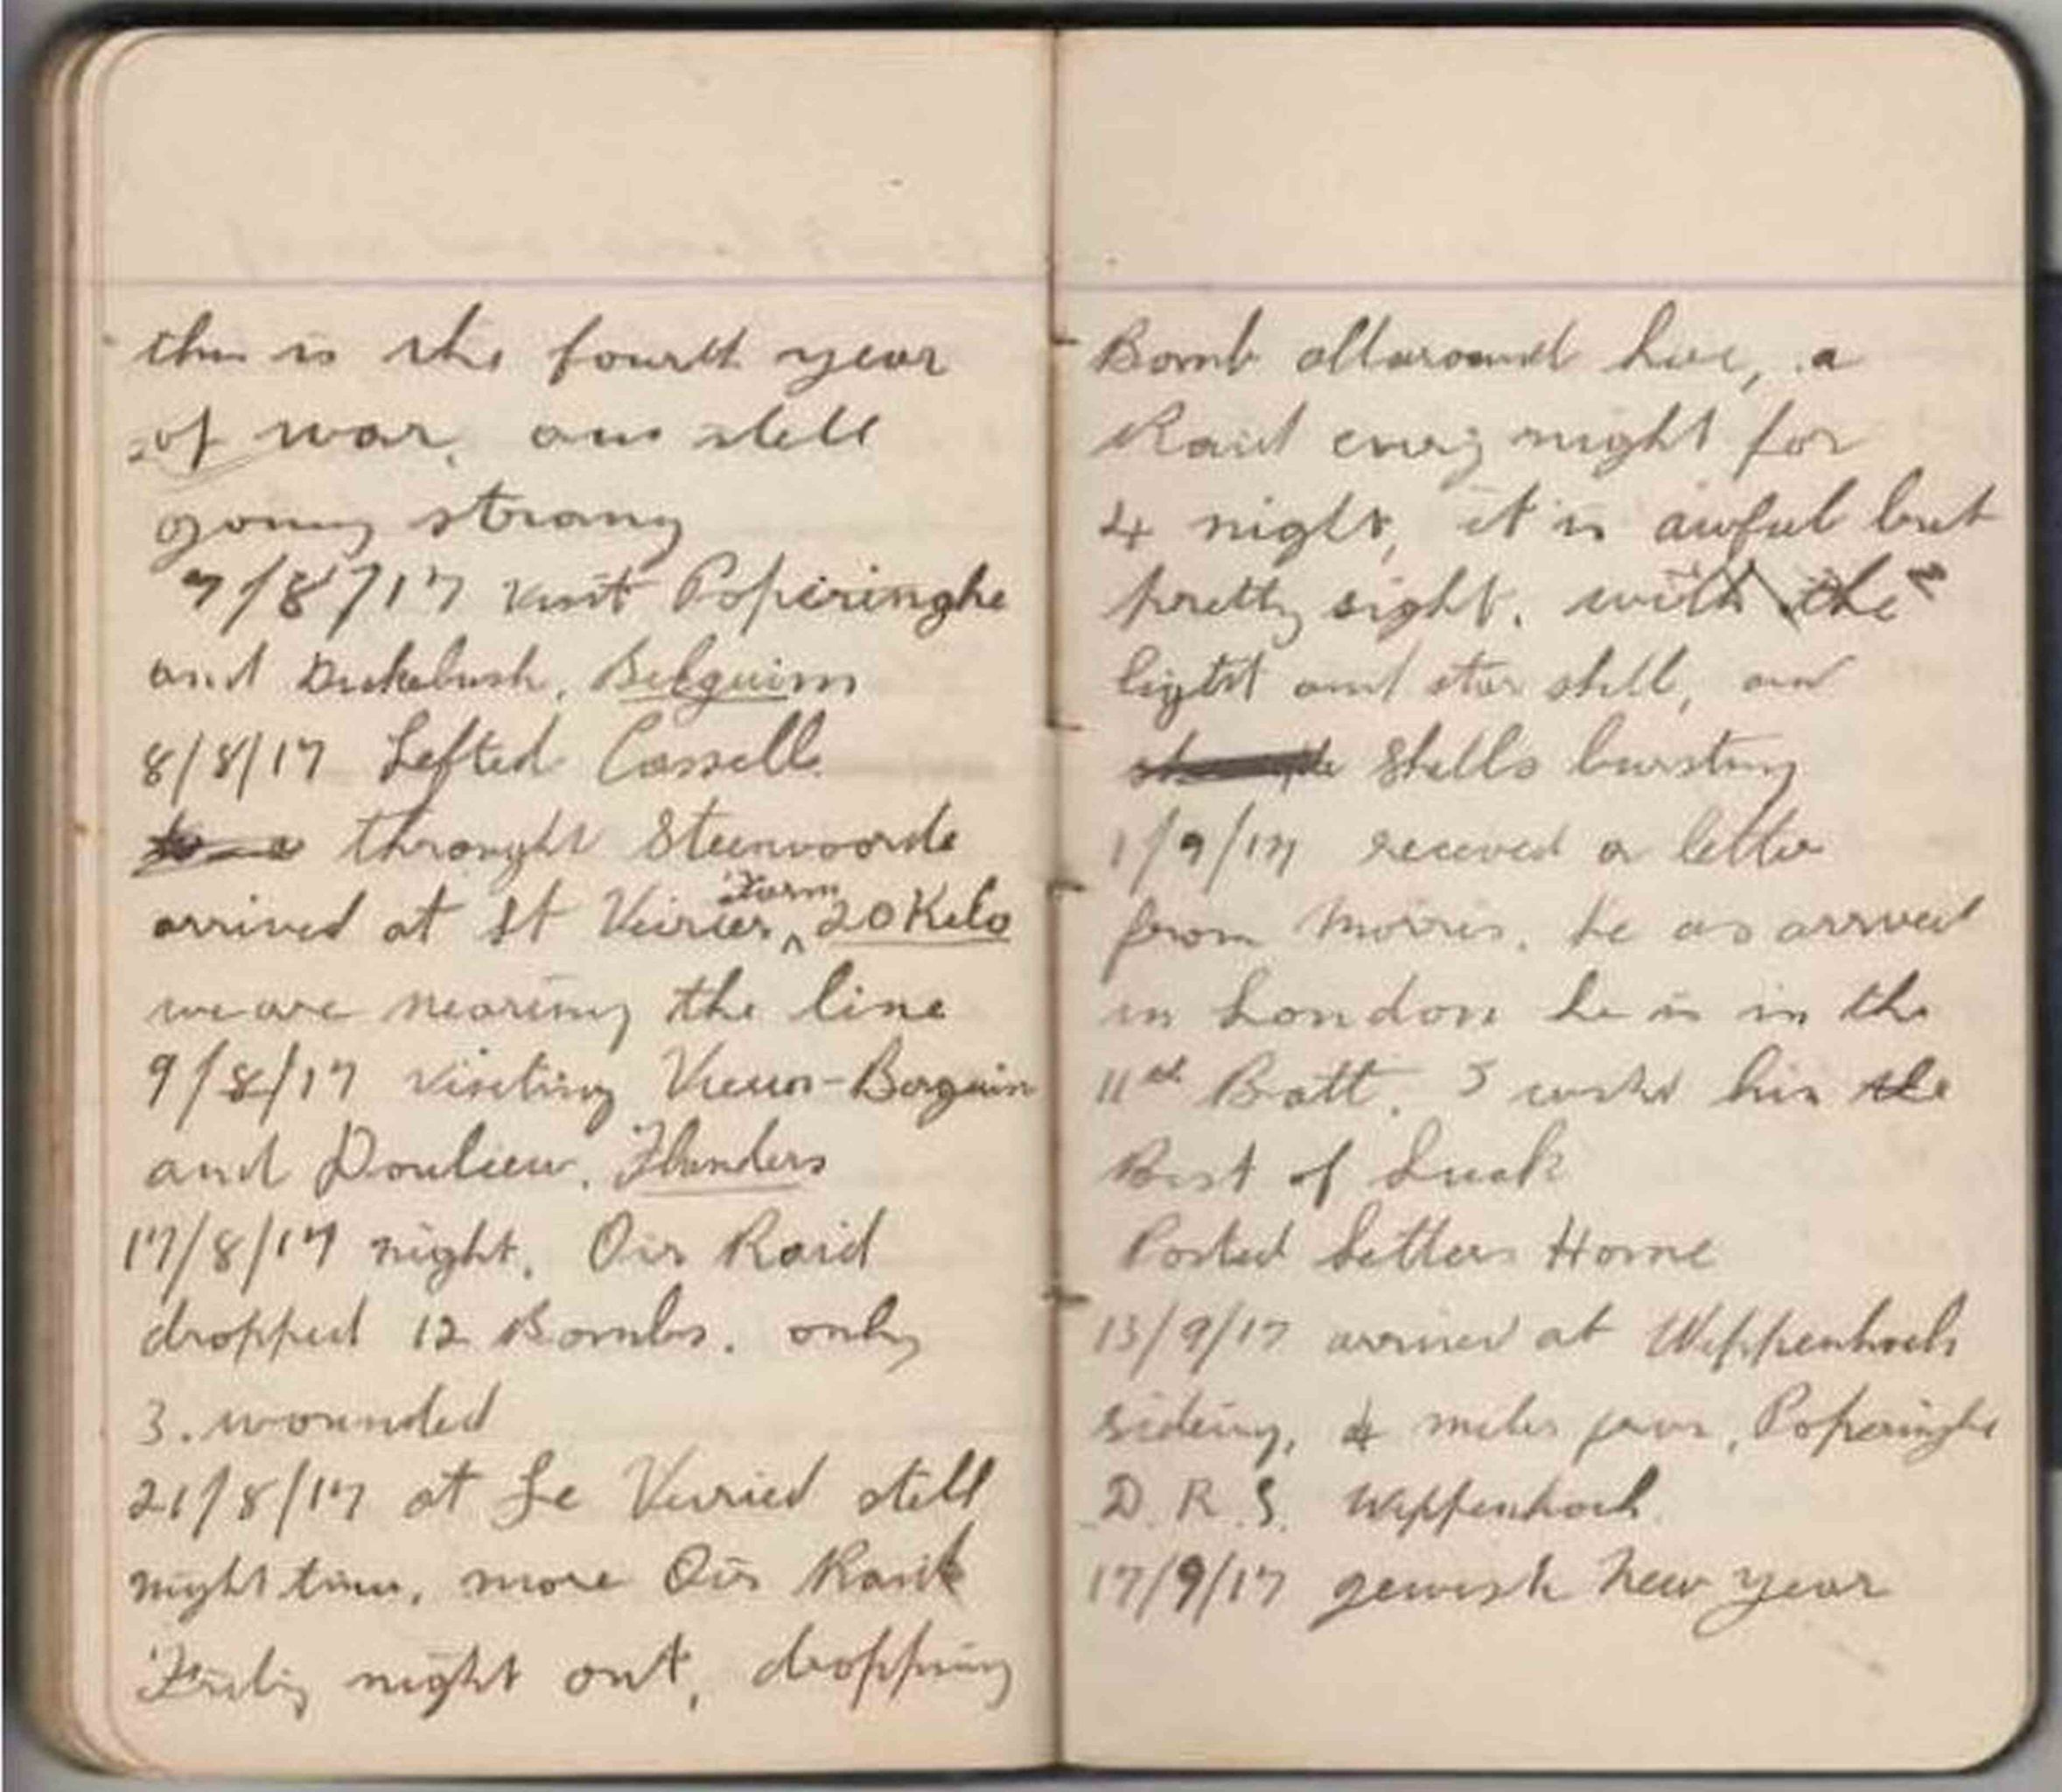 this is the fourth year
of war, and still
going strong
7/8/17 visit Poperinghe
and Dickebush, Belguim
8/8/17 Lefted Cassell
throught Steenvoorde
Farm
arrived at St 20 Kilo
we are nearing the line
9/8/17 visiting Vieux-Berguin
and Doulieu. Flanders
17/8/17 night. Air Raid
dropped 12 Bombs. only
3. wounded
21/8/17 at Le still
night time, more Air Raid
night out, dropping
Bomb allaround here, a
Raid every night for
4 night, it is awful but
pretty sight. with the
light and star shell, and
shells bursting
1/9/17 received a letter
from Morris. he as arrived
in London he is in the
11th Batt. I wish him the
Best of Luck
Posted Letters Home
13/9/17 arrived at Wippenhoek
sideing, 4 miles from, Poperinghe
D. R. S. Wippenhoek
17/9/17 gewish New year